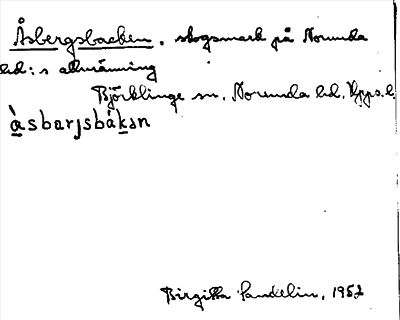 Åsbergsbacken, skogsmark på Norunda
hd:s allmänning
Björklinge sn, Norunda hd, Upps. l.
àsbærjsbákən
Birgitta Sandelin, 1952